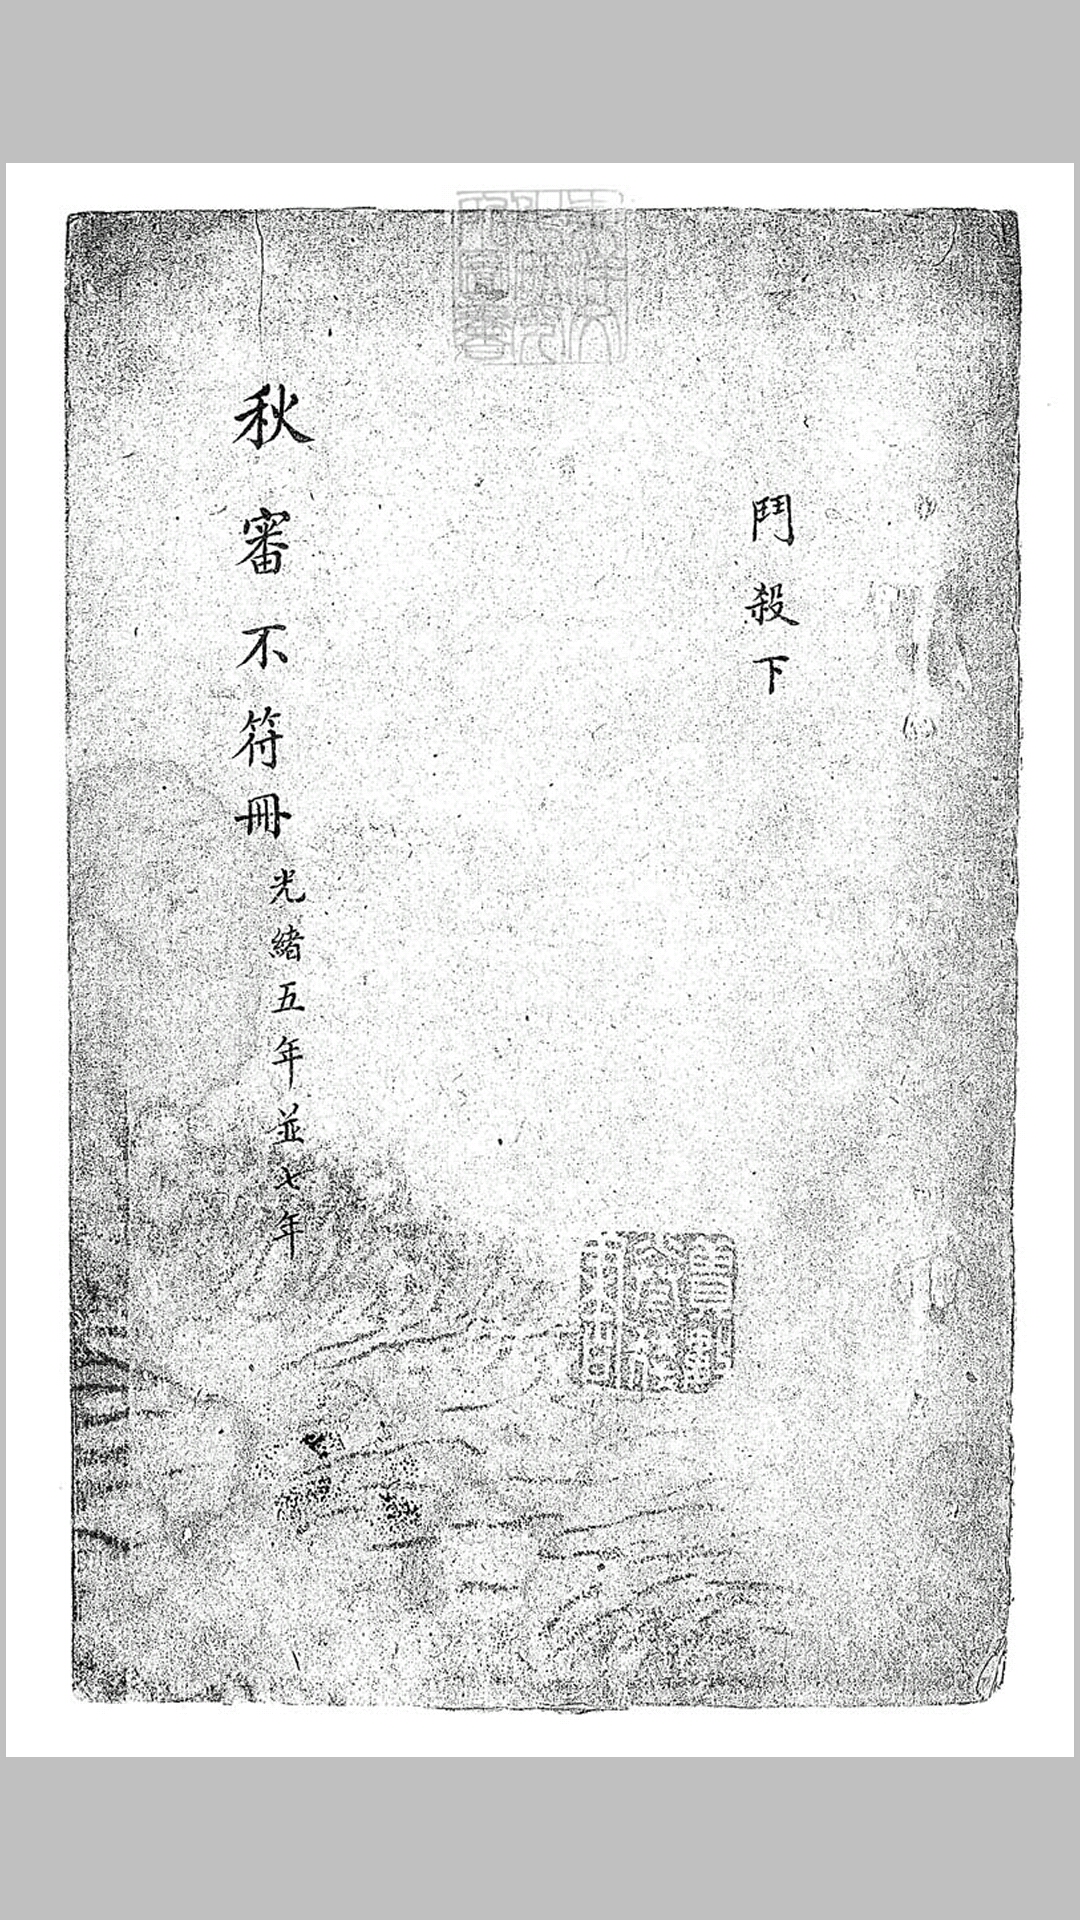 鬥殺下
秋審不符冊
光緒五年並七年